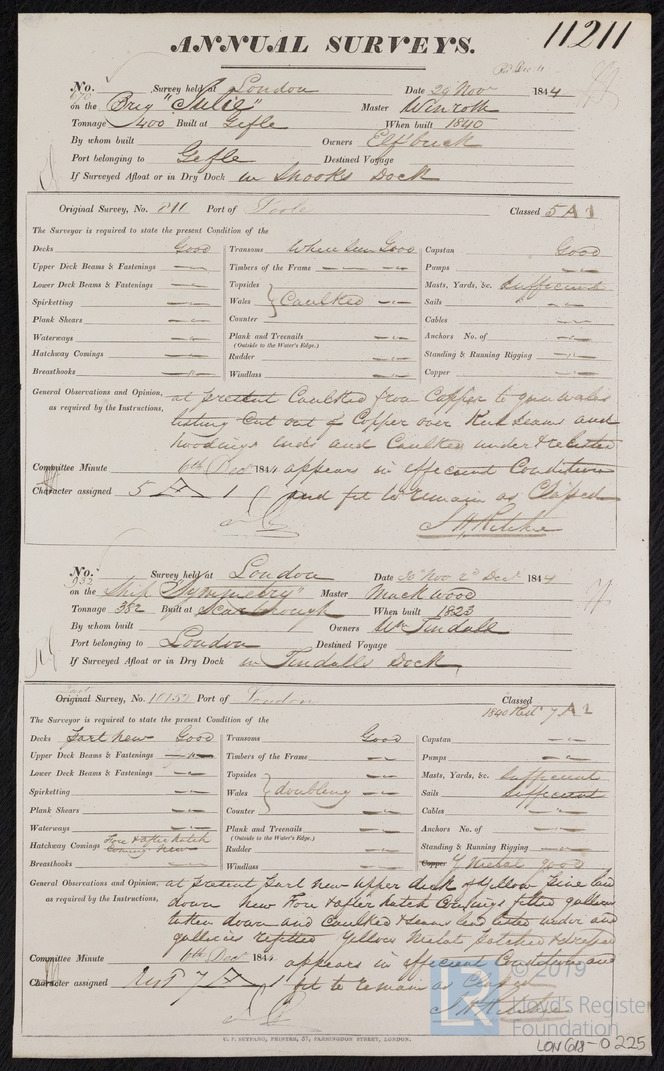 11211
ANNUAL SURVEYS.
No. 670 Survey held at London Date 29 Nov 1844
on the Brig "Julie" Master Winroth
Tonnage 400 Built at Gefle When built 1840
By whom built Owners Elfbuck
Port belonging to Gefle Destined Voyage
If Surveyed Afloat or in Dry Dock in Snooks Dock
Original Survey, No. 811 Port of Poole Classed 5 A 1
The Surveyor is required to state the present Condition of the
Decks Good Transoms When seen Good Capstan Good
Upper Deck Beams & Fastenings Timbers of the Frame Pumps
Lower Deck Beams & Fastenings Topsides Masts, Yards, &c. Sufficient
Spirketting Wales Caulked Sails
Plank Shears Counter Cables
Waterways Plank and Treenails Anchors No. of
(Outside to the Water's Edge.)
Hatchway Comings Rudder Standing & Running Rigging
Breasthooks Windlass Copper
General Observations and Opinion, at present Caulked from Copper to gunwales
as required by the Instructions, listing cut out of Copper over Rud seams and
hoodings ends and Caulked under & relisted
Committee Minute 6th Decr 1844 appears in efficient Condition
Character assigned 5 A 1 and fit to remain as Classed
J H Ritchie
No. 932 Survey held at London Date 30 Nov 2d Decr 1844
on the Ship "Symmetry" Master Mackwood
Tonnage 382 Built at Scarborough When built 1823
By whom built Owners Wm Tindall
Port belonging to London Destined Voyage
If Surveyed Afloat or in Dry Dock in Tindalls Dock
Original Survey, No. 10152 Port of London Classed
1840 Rest 7 A 1
The Surveyor is required to state the present Condition of the
Decks Part new Good Transoms Good Capstan
Upper Deck Beams & Fastenings Timbers of the Frame Pumps
Lower Deck Beams & Fastenings Topsides Masts, Yards, &c. Sufficient
Spirketting Wales doubling Sails Sufficient
Plank Shears Counter Cables
Waterways Plank and Treenails Anchors No. of
(Outside to the Water's Edge.)
Hatchway Comings Fore & after hatch Comings new Rudder Standing & Running Rigging
Breasthooks Windlass Copper Y Metal good
General Observations and Opinion, at present Part new upper deck of Yellow Pine laid
as required by the Instructions, down new Fore & after hatch Comings fitted galleries
taken down and Caulked & seams lead listed under and
galleries refitted Yellow Metal patched & dressed
Committee Minute 6th Decr 1844 appears in efficient Condition and
Character assigned Rest 7 A 1 fit to remain as Classed
J H Ritchie
C. F. SEYFANG, PRINTER, 57, FARRINGDON STREET, LONDON.
© 2019
LR Lloyd's Register
Foundation
LON 618-0225